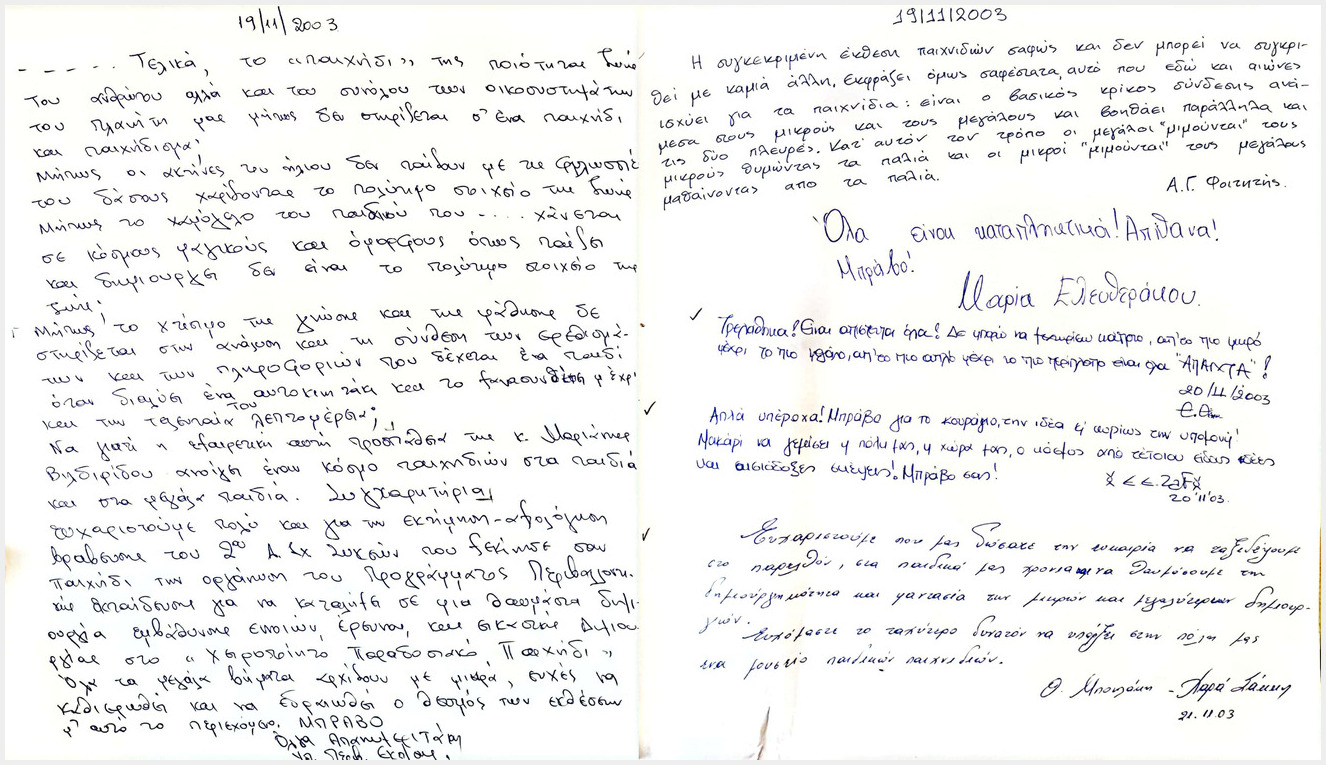 19/11/2003
- - - - . Τελικά, το «παιχνήδι» της ποιότητας ζωής
του ανθρώπου αλλά και του συνόλου των οικοσυστημάτων
του πλανήτη μας μήπως δεν στηρίζεται σ' ένα παιχνήδι
και παιχνήδισμα;
Μήπως οι ακτήνες του ήλιου δεν παίζουν με τις φυλλωσιές
του δάσους χαρίζοντας το πολύτιμο στοιχείο της ζωής
Μήπως το χαμόγελο του παιδιού που - . . . . χάνεται
σε κόσμους μαγικούς και όμορφους όπως παίζει
και δημιουργεί δεν είναι το πολύτιμο στοιχείο της
ζωής;
Μήπως το χτίσιμο της γνώσης και της μάθησης δε
στηρίζεται στην ανάλυση και τη σύνθεση των ερεθισμά-
των και των πληροφοριών που δέχεται ένα παιδί
όταν διαλύει ένα αυτοκινητάκι και το ξανασυνθέτει μέχρι
και την τελευταία του λεπτομέρεια;
Να γιατί η εξαιρετική αυτή προσπάθεια της κ. Μαριάνθης
Βηδιρίδου ανοίγει έναν κόσμο παιχνηδιών στα παιδιά
και στα μεγάλα παιδιά. Συγχαρητήρια
Ευχαριστούμε πολύ και για την εκτίμηση-αξιολόγηση
βράβευσης του 2ου Δ. Σχ Συκεών που ξεκίνησε σαν
παιχνήδι την οργάνωση του Προγράμματος Περιβαλλοντι-
κής Εκπαίδευσης για να καταλήξει σε μια θαυμάσια δημι-
ουργία εμβάθυνσης εννοιών, έρευνας, και εικαστικής Δημιου
ργίας στο «Χειροποίητο Παραδοσιακό Παιχνήδι»
Όλα τα μεγάλα βήματα αρχίζουν με μικρά, ευχές να
καθιερωθεί και να εδραιωθεί ο θεσμός των εκθέσεων
μ' αυτό το περιεχόμενο. ΜΠΡΑΒΟ
Όλγα
Υπ. Περιβ. Εκπαίδ.
19/11/2003
Η συγκεκριμένη έκθεση παιχνιδιών σαφώς και δεν μπορεί να συγκρι-
θεί με καμιά άλλη. Εκφράζει όμως σαφέστατα, αυτό που εδώ και αιώνες
ισχύει για τα παιχνίδια: είναι ο βασικός κρίκος σύνδεσης ανά-
μεσα στους μικρούς και τους μεγάλους και βοηθάει παράλληλα και
τις δύο πλευρές. Κατ' αυτόν τον τρόπο οι μεγάλοι "μιμούνται" τους
μικρούς θυμώντας τα παλιά και οι μικροί "μιμούνται" τους μεγάλους
μαθαίνοντας απο τα παλιά.
Α.Γ. Φοιτητής.
Όλα είναι καταπληκτικά! Απίθανα!
Μπράβο!
Μαρία Ελευθεράκου.
Τρελάθηκα! Είναι απίστευτα όλα! Δε μπορώ να ξεχωρίσω κάτι, απ'το πιο μικρό
μέχρι το πιο μεγάλο, απ'το πιο απλό μέχρι το πιο περίπλοκο είναι όλα "ΑΠΑΝΤΑ"!
20/11/2003
Απλά υπέροχα! Μπράβο για το κουράγιο, την ιδέα κι κυρίως την υπομονή!
Μακάρι να γεμίσει η πόλη μας, η χώρα μας, ο κόσμος από τέτοιου είδους ιδέες
και αισιόδοξες σκέψεις! Μπράβο σας!
20·11'03.
Ευχαριστούμε που μας δώσατε την ευκαιρία να ταξιδέψουμε
στο παρελθόν, στα παιδικά μας χρόνια και να θαυμάσουμε τη
δημιουργημότητα και φαντασία των μικρών και μεγαλύτερων δημιουρ-
γών.
Ευχόμαστε το ταχύτερο δυνατόν να υπάρξει στην πόλη μας
ένα μουσείο παιδικών παιχνιδιών.
21.11.03